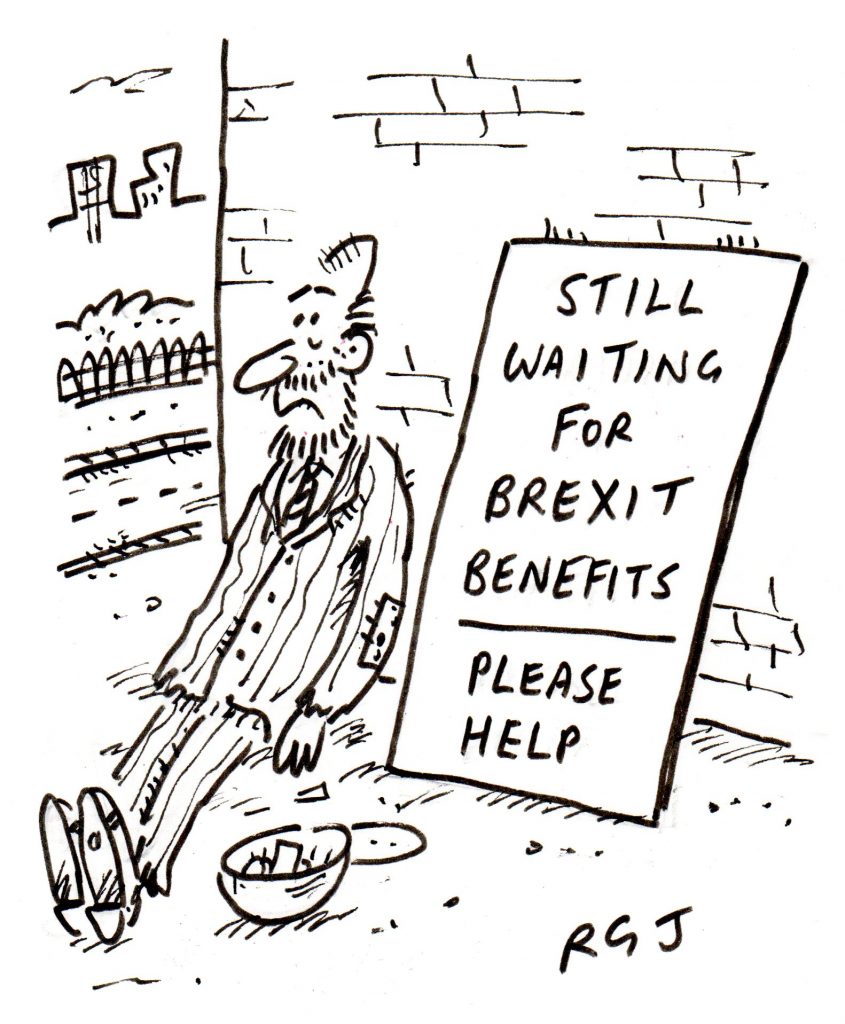 STILL
WAITING
FOR
BREXIT
BENEFITS
PLEASE
HELP
RGJ